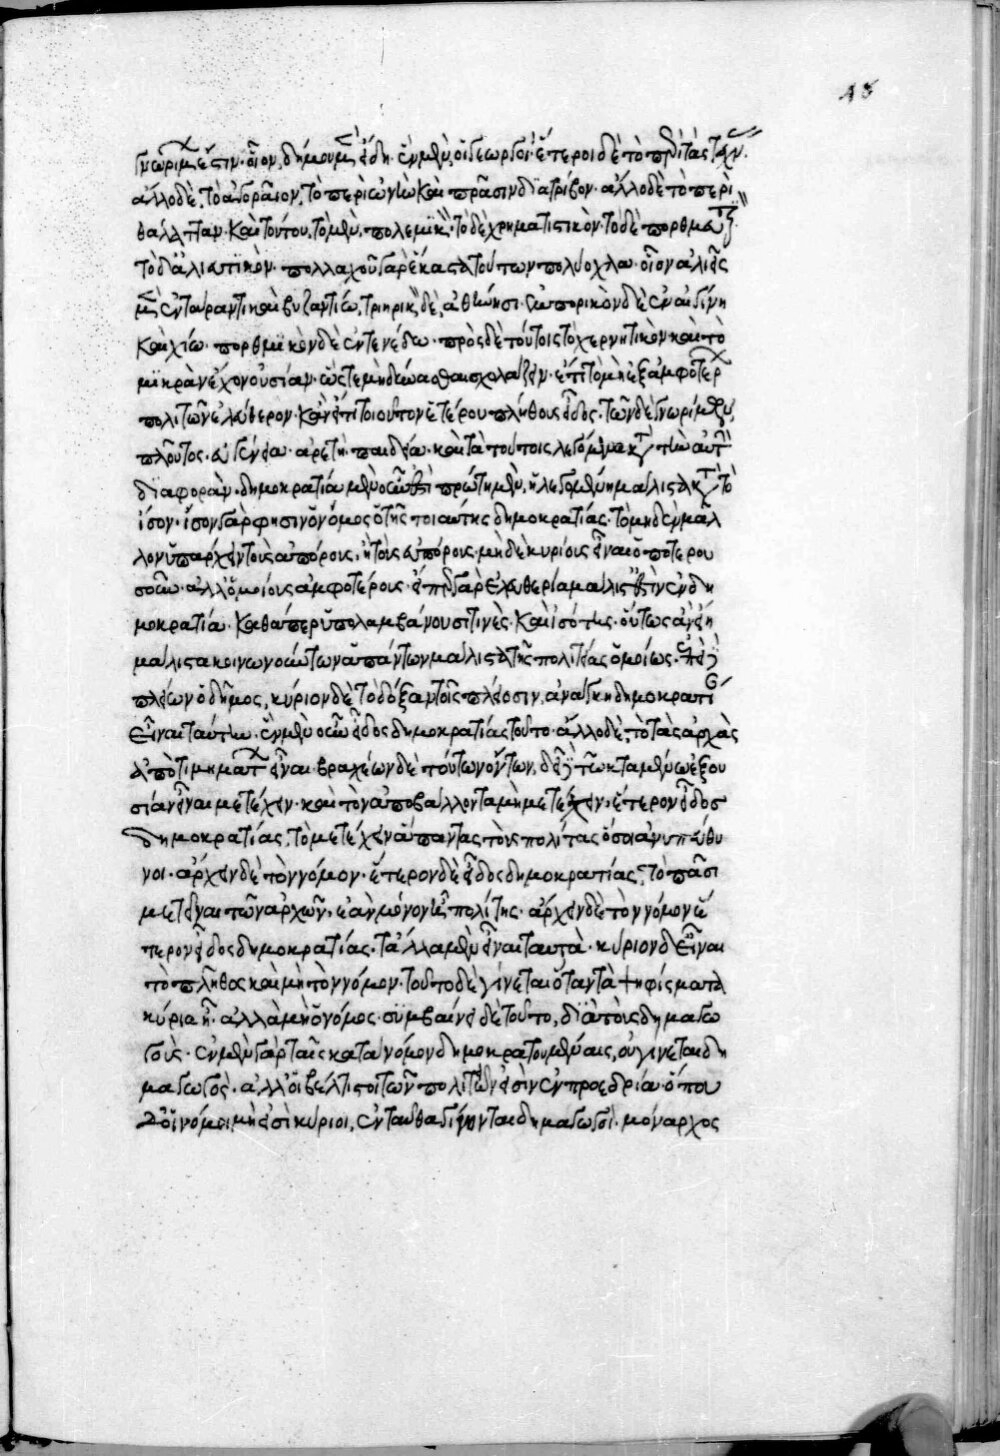 18
γνωρίμων ἐστίν· οἷον, δήμου μὲν εἴδη· ἓν μὲν, οἱ γεωργοί· ἕτεροι δὲ τὸ περὶ τὰς τέχνας·
ἄλλο δὲ, τὸ ἀγοραῖον, τὸ περὶ ὠνὴν καὶ πρᾶσιν διατρίβον· ἄλλο δὲ τὸ περὶ
θάλατταν· καὶ τούτου, τὸ μὲν, πολεμικόν· τὸ δὲ χρηματιστικὸν· τὸ δὲ πορθμευτικόν·
τὸ δ' ἁλιευτικὸν· πολλαχοῦ γὰρ ἕκαστα τούτων πολύοχλα· οἷον ἁλιεῖς
μὲν ἐν τάραντι καὶ βυζαντίω, τριηρικὸν δὲ, ἀθήνησι· ἐμπορικὸν δὲ ἐν αἰγίνη
καὶ χίω· πορθμικὸν δὲ ἐν τενέδω· πρὸς δὲ τούτοις τὸ χερνητικὸν καὶ τὸ
μικρὰν ἔχον οὐσίαν· ὥστε μὴ δύνασθαι σχολάζειν· ἔτι τὸ μὴ ἐξ ἀμφοτέρων
πολιτῶν ἐλεύθερον· κἂν εἴ τι τοιοῦτον ἑτέρου πλήθους εἶδος· τῶν δὲ γνωρίμων,
πλοῦτος· εὐγένεια· ἀρετὴ· παιδεία· καὶ τὰ τούτοις λεγόμενα κατὰ τὴν αὐτὴν
διαφορὰν· δημοκρατία μὲν οὖν ἐστὶ πρώτη μὲν, ἡ λεγομένη μάλιστα κατὰ τὸ
ἴσον· ἴσον γὰρ φησὶν ὁ νόμος ὁ τῆς τοιαύτης δημοκρατίας· τὸ μηδὲν μᾶλ
λον ὑπάρχειν τοὺς ἀπόρους, ἢ τοὺς εὐπόρους· μηδὲ κυρίους εἶναι ὁποτερου
σοῦν· ἀλλ' ὁμοίους ἀμφοτέρους· εἴπερ γὰρ ἐλευθερία μάλιστ' ἐστὶν ἐν δη
μοκρατία· καθάπερ ὑπολαμβάνουσί τινὲς· καὶ ἰσότης· οὕτως ἂν εἴη
μάλιστα κοινωνούντων ἁπάντων μάλιστα τῆς πολιτείας ὁμοίως· ἐπεὶ δὲ
πλείων ὁ δῆμος, κύριον δὲ τὸ δόξαν τοῖς πλείοσιν, ἀνάγκη δημοκρατίαν
εἶναι ταύτην· ἓν μὲν οὖν εἶδος δημοκρατίας τοῦτο· ἄλλο δὲ, τὸ τὰς ἀρχὰς
ἀπὸ τιμημάτων εἶναι· βραχέων δὲ τούτων ὄντων, δεῖ δὲ τῶ κταμένω ἐξου
σίαν εἶναι μετέχειν· καὶ τὸν ἀποβάλλοντα μὴ μετέχειν, ἕτερον εἶδος
δημοκρατίας, τὸ μετέχειν ἅπαντας τοὺς πολίτας ὅσοι ἀνυπεύθυ
νοι· ἄρχειν δὲ τὸν νόμον· ἕτερον δὲ εἶδος δημοκρατίας, τὸ πᾶσι
μετεῖναι τῶν ἀρχῶν, ἐὰν μόνον ἦ πολίτης· ἄρχειν δὲ τὸν νόμον ἕ
τερον εἶδος δημοκρατίας· τἄλλα μὲν εἶναι ταυτὰ· κύριον δ' εἶναι
τὸ πλῆθος καὶ μὴ τὸν νόμον· τοῦτο δὲ γίνεται ὅταν τὰ ψηφίσματα
κύρια ἦ· ἀλλὰ μὴ ὁ νόμος· συμβαίνει δὲ τοῦτο, διὰ τοὺς δημαγω
γοὺς· ἐν μὲν γὰρ ταῖς κατὰ νόμον δημοκρατουμέναις, οὐ γίνεται δη
μαγωγὸς· ἀλλ' οἱ βέλτιστοι τῶν πολιτῶν εἰσὶν ἐν προεδρία· ὅπου
δ' οἱ νόμοι μὴ εἰσὶ κύριοι, ἐνταῦθα γίνονται δημαγωγοὶ· μόναρχος